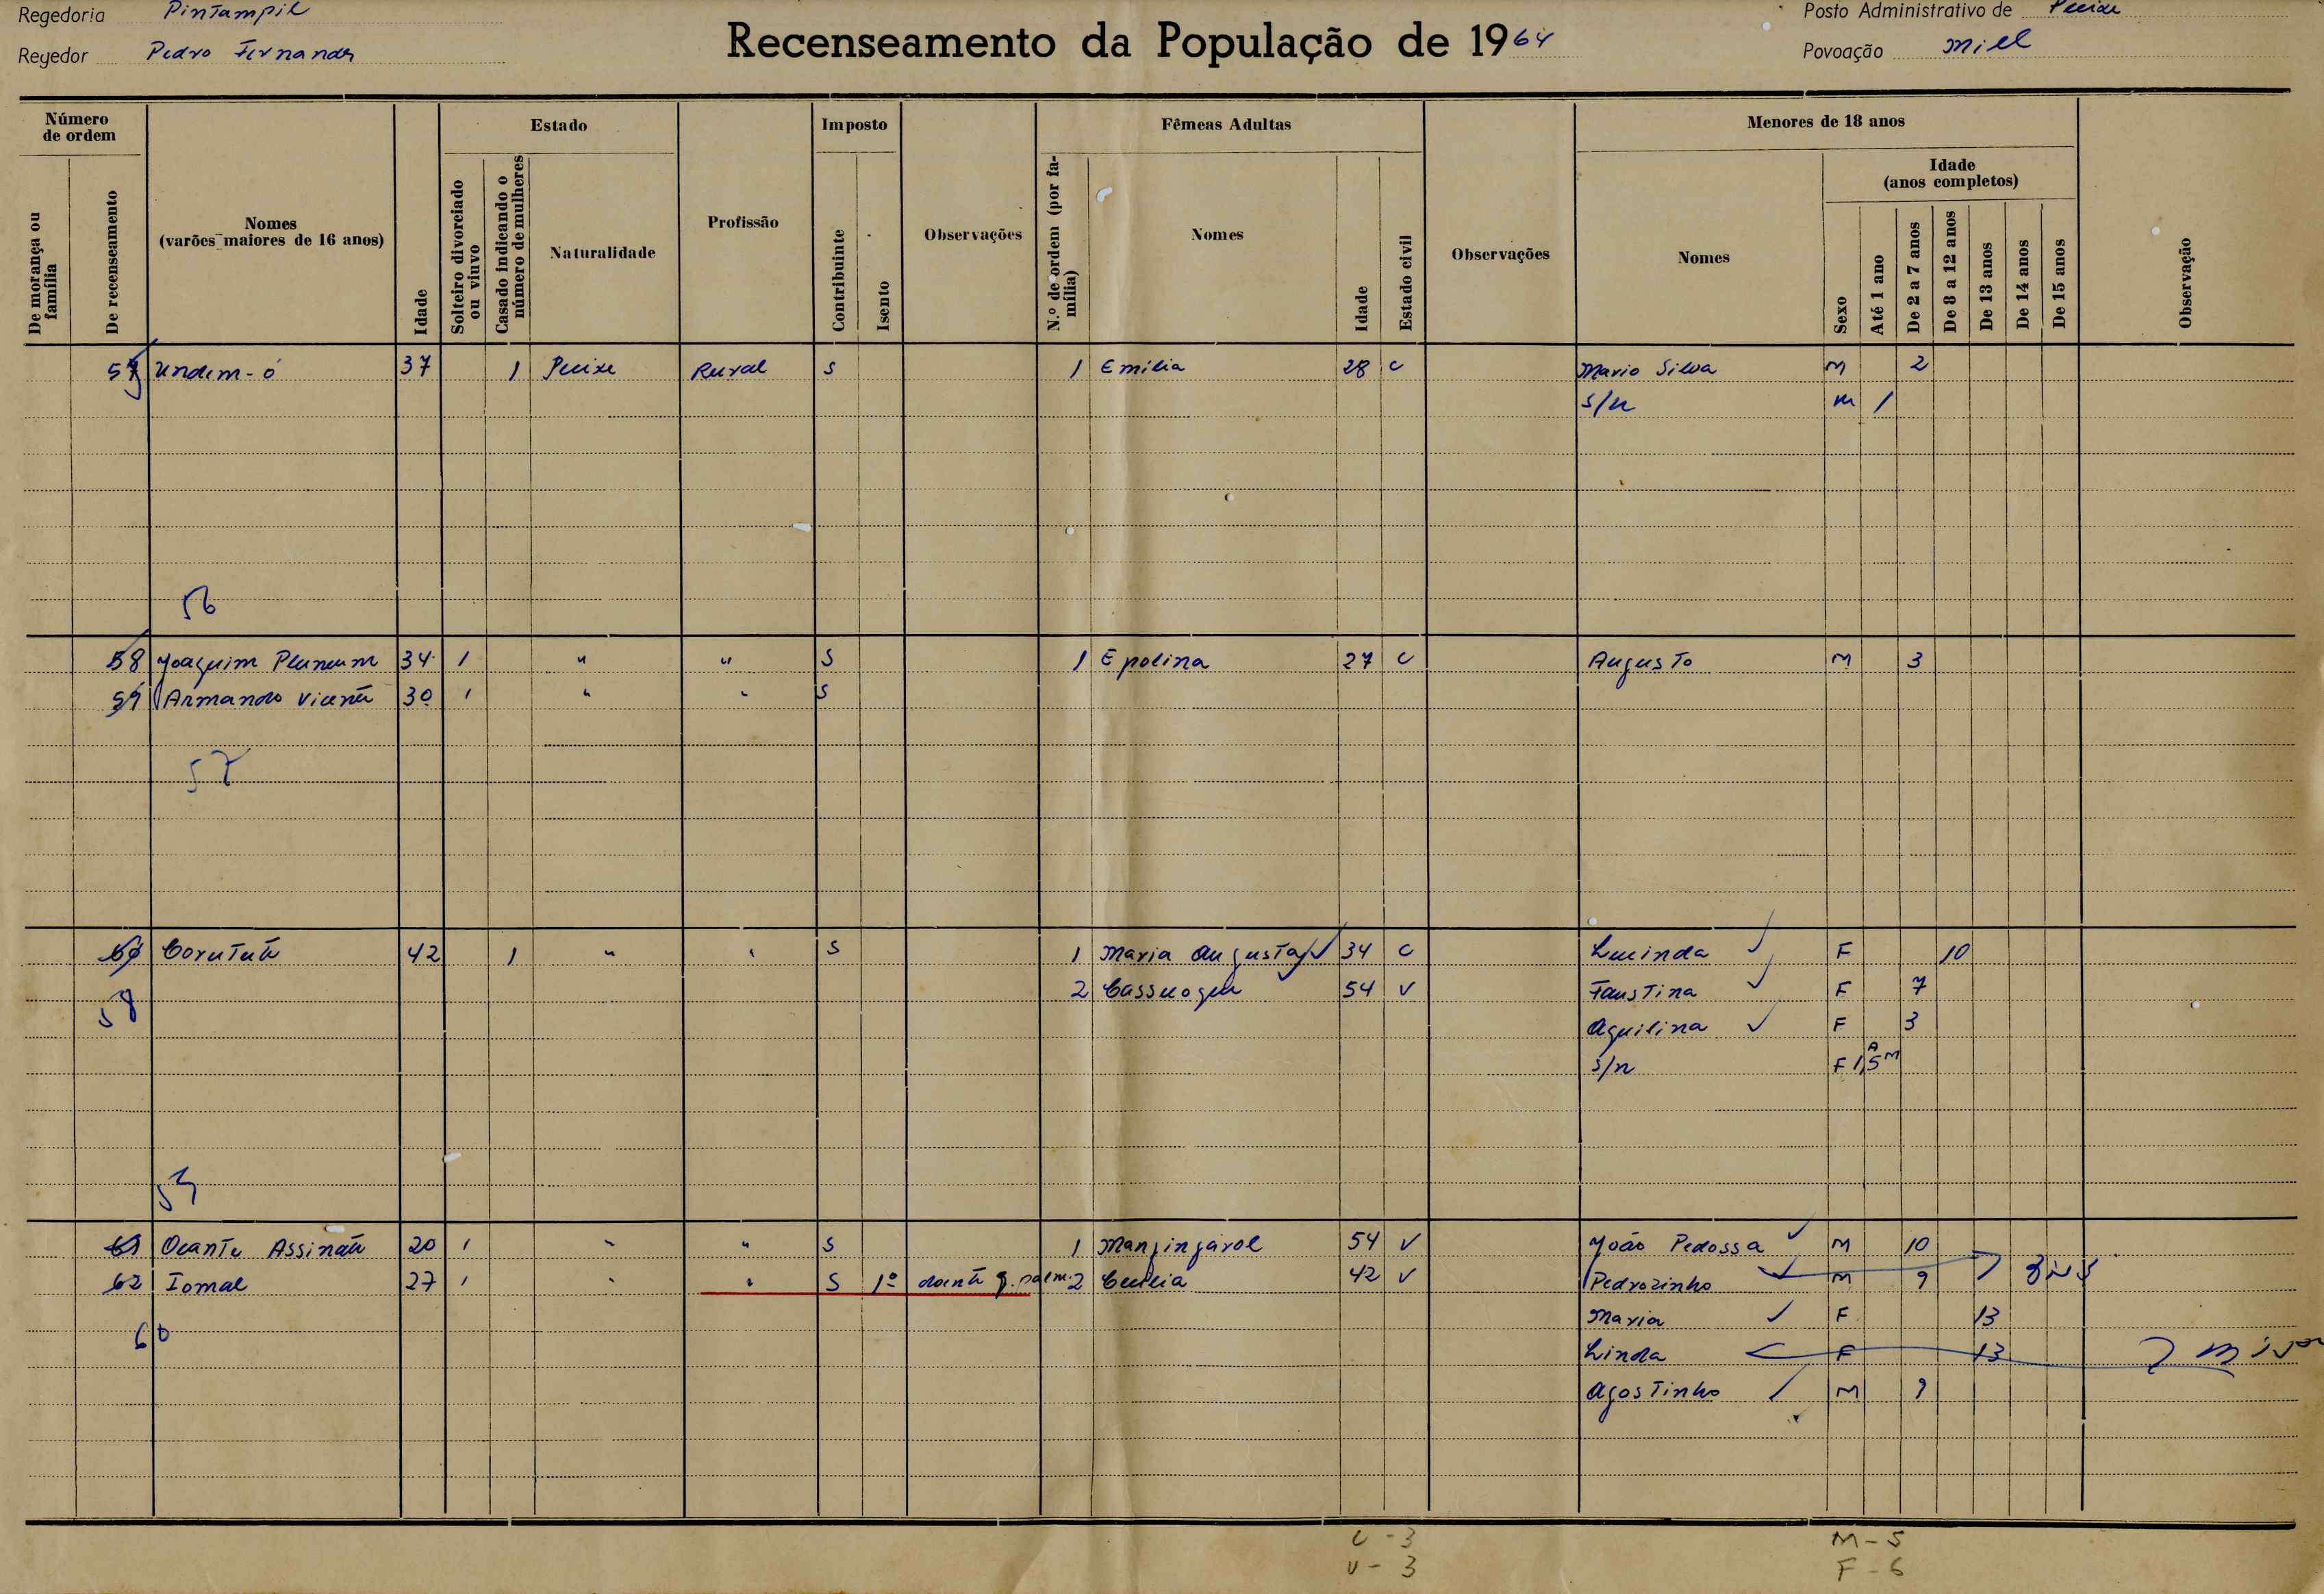 Regedoria Pintampil
Regedor Pedro Fernandes
Recenseamento da População de 1964
Posto Administrativo de Pecixe
Povoação Miel
Número de ordem
De morança ou família
De recenseamento
Nomes (varões maiores de 16 anos)
Idade
Estado
Solteiro divorciado ou viuvo
Casado indicando o número de mulheres
Naturalidade
Profissão
Imposto
Contribuinte
Isento
Observações
Fêmeas Adultas
N.º de ordem (por família)
Nomes
Idade
Estado civil
Observações
Menores de 18 anos
Nomes
Idade (anos completos)
Sexo
Até 1 ano
De 2 a 7 anos
De 8 a 12 anos
De 13 anos
De 14 anos
De 15 anos
Observação
57 Undem-ó 37 1 Pecixe Rural S 1 Emilia 28 C Mario Silva M 2
S/n M 1
56
58 Joaquim 34 1 " " S 1 Epolina 27 C Augusto M 3
59 Armando Vicente 30 1 " " S
57
60 Corutute 42 1 " " S 1 Maria Augusta 34 C Lucinda F 10
2 54 V Faustina F 7
58 Aquilina F 3
S/n F 1A,5M
59
61 Ocante Assinate 20 1 " " S 1 Manjingavol 54 V João Pedossa M 10
62 Iomal 27 1 " " S 1º doente 2 Cecilia 42 V Pedrozinho M 9
Maria F 13
60 Linda F 13
Agostinho M 9
C - 3 M - 5
V - 3 F - 6